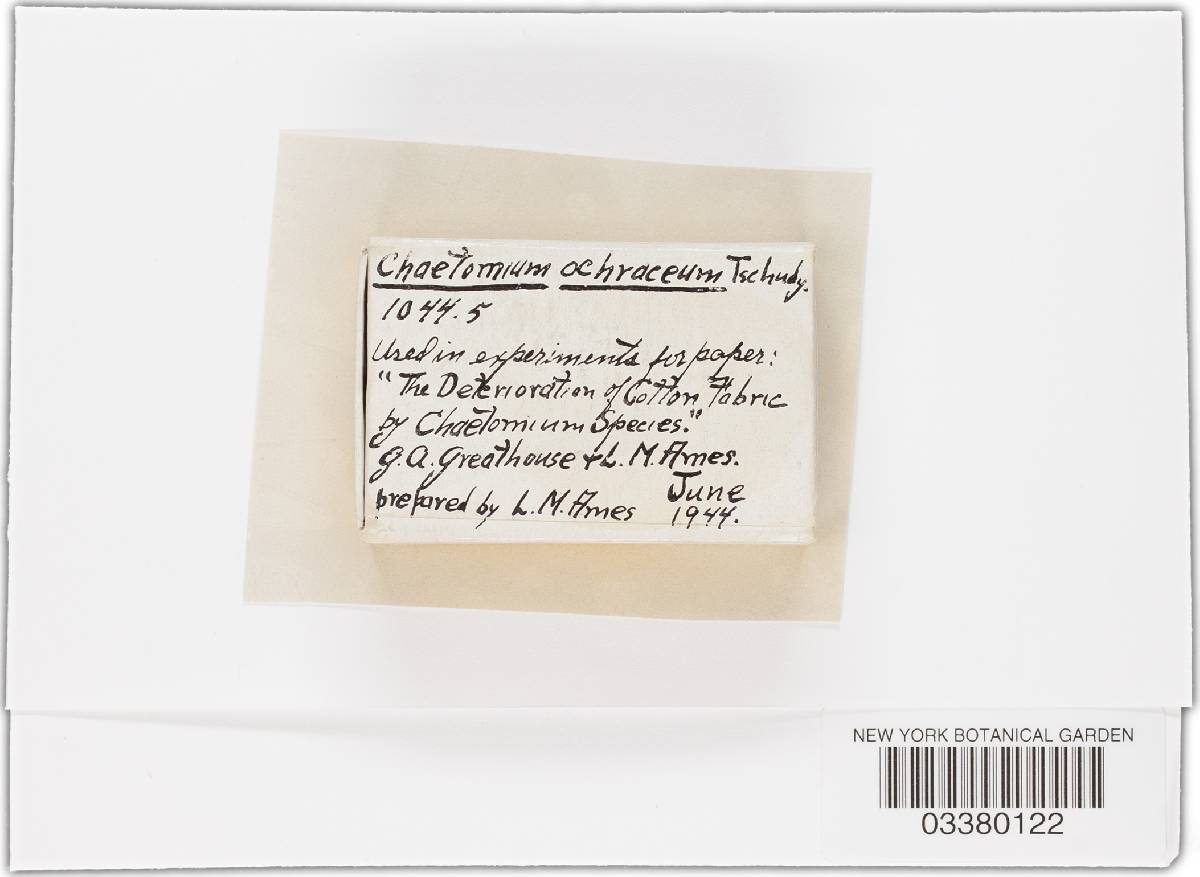 Chaetomium ochraceum Tschudy.
1044.5
Used in experiments for paper:
"The Deterioration of Cotton Fabric
by Chaetomium Species."
G.A. Greathouse & L. M. Ames.
prepared by L. M. Ames June
1944.
NEW YORK BOTANICAL GARDEN
03380122